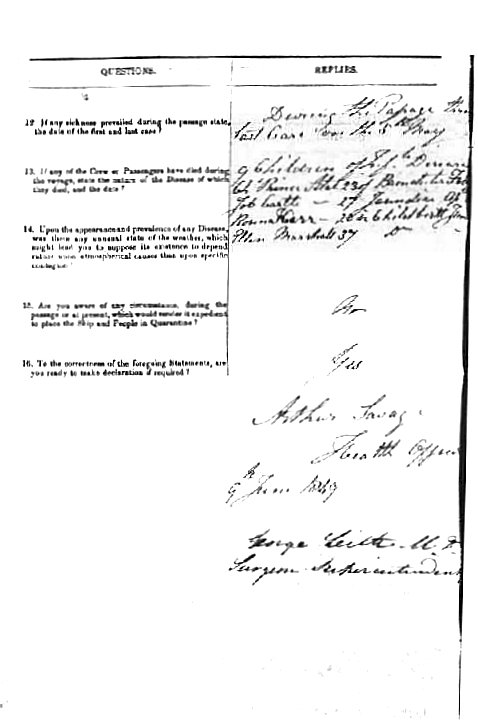 QUESTIONS.
REPLIES.
12 If any sickness prevailed during the passage state,
the date of the first and last case?
During the
last Case was the 5th May
13. If any of the Crew or Passengers have died during
the voyage, state the nature of the Disease of which
they died, and the date?
9 Children of
Job Earle - 27 Jaundice
- in Childbirth
Ellen Marshall 37 Do
14. Upon the appearance and prevalence of any Disease,
was there any unusual state of the weather, which
might lead you to suppose its existence to depend
rather upon atmospherical causes than upon specific
contagion?
15. Are you aware of any circumstance, during the
passage or at present, which would render it expedient
to place the Ship and People in Quarantine?
No
16. To the correctness of the foregoing Statements, are
you ready to make declaration if required?
Yes
Arthur Savage
Health Officer
9th June 1849
George Leith M.D
Surgeon Superintendent